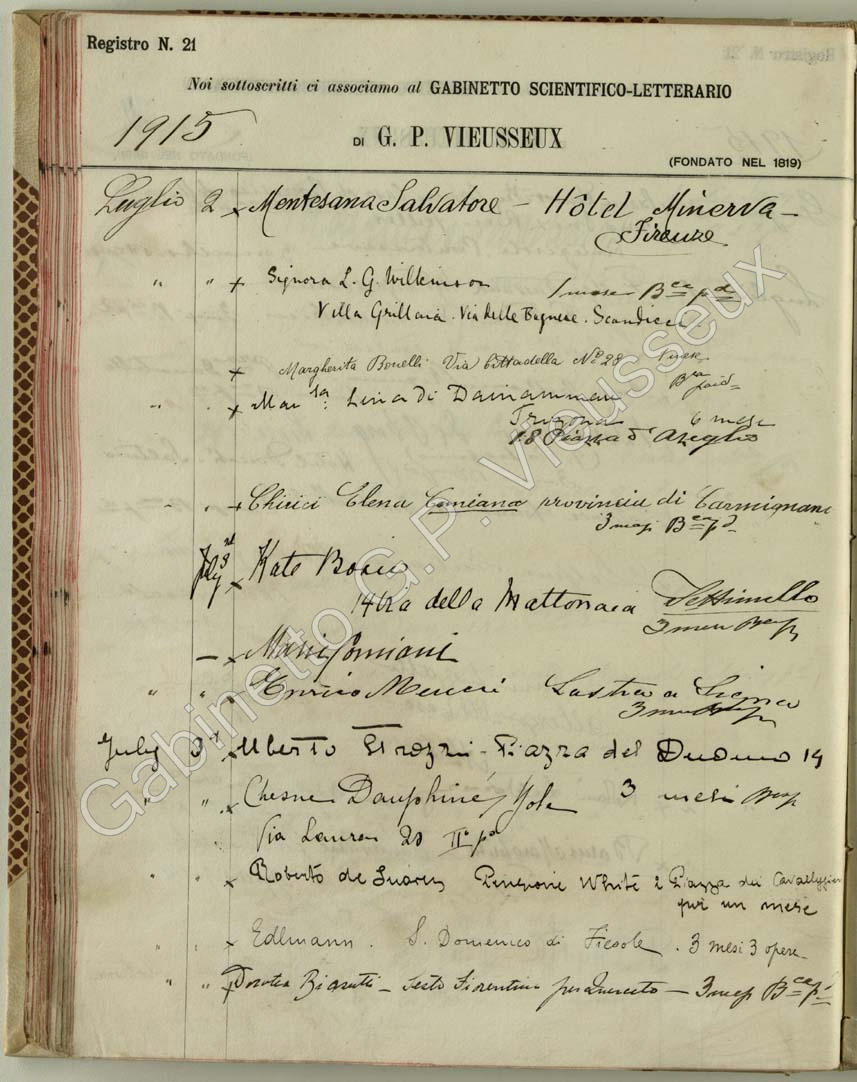 Registro N. 21
Noi sottoscritti ci associamo al GABINETTO SCIENTIFICO-LETTERARIO
1915
DI G. P. VIEUSSEUX
(FONDATO NEL 1819)
Luglio 2 x Montesana Salvatore - Hôtel Minerva -
Firenze
" " x Signora L. G. Wilkinson 1 mese
Villa Grillaia. Via delle Bagnese. Scandicci
x Margherita Bonelli Via Cittadella Nº 28
" " x Lina di
18 Piazza d'Azeglio 6 mesi
" " x Chirici Elena provincia di Carmignano
3 mesi
July 3rd x Kate
14 Via della Mattonaia Settimello
3 mesi
- x
" " x Enrico Meucci Lastra a Signa
3 mesi
July 3d x Uberto Strozzi - Piazza del Duomo 14
" " x Chesne Dauphiné Yole 3 mesi
Via Laura 20 IIº pº
" " x Roberto de Suarez Pensione White 2 Piazza dei Cavalleggieri
per un mese
" x Edlmann. S. Domenico di Fiesole. 3 mesi 3 opere
" " x Dorotea - Sesto Fiorentino per Querceto - 3 mesi
Gabinetto G.P. Vieusseux